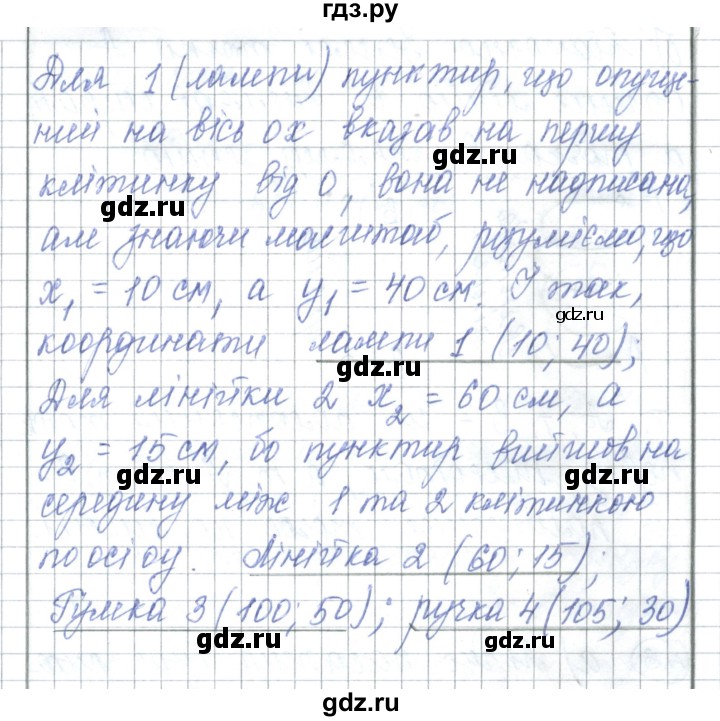 гдз.ру
Для 1 (лампи) пунктир, що опуще-
ний на вісь ох вказав на першу
gdz.ru
клітинку від 0, вона не надписана,
gdz.ru
але знаючи масштаб, розуміємо, що
x₁ = 10 см, а y₁ = 40 см. І так,
gdz.ru
координати лампи 1 (10; 40);
gdz.ru
Для лінійки 2 x₂ = 60 см, а
y₂ = 15 см, бо пунктир вийшов на
gdz.ru
середину між 1 та 2 клітинкою
gdz.ru
по осі оу. Лінійка 2 (60; 15);
gdz.ru
Гумка 3 (100; 50); ручка 4 (105; 30)
gdz.ru
gdz.ru
gdz.ru